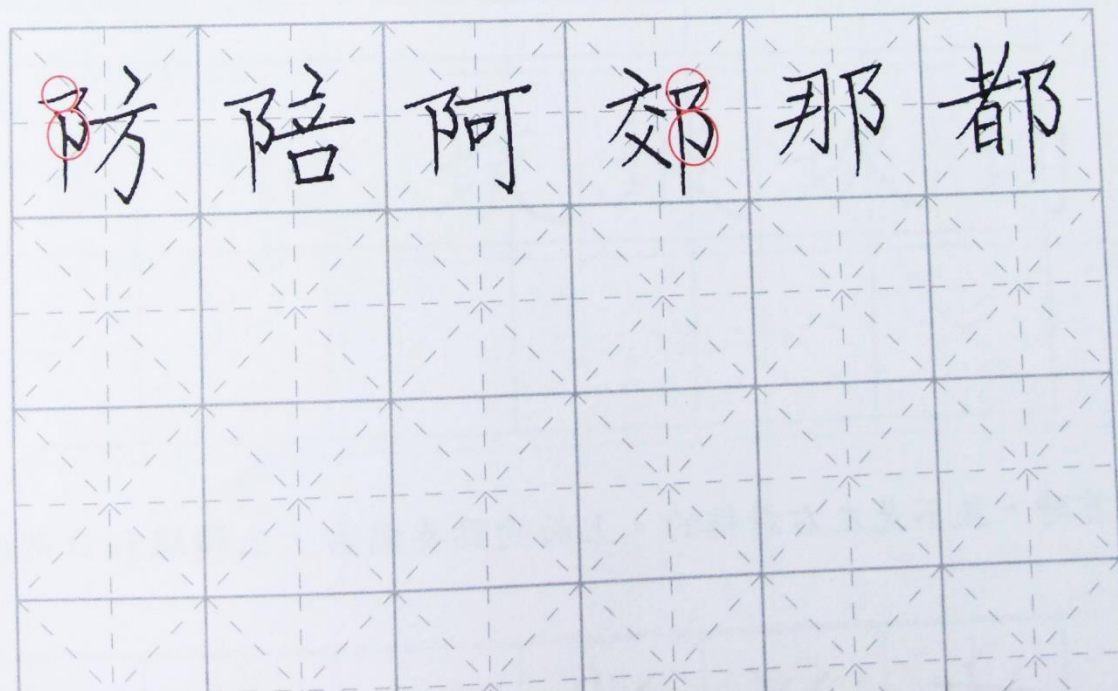 防陪阿郊那都